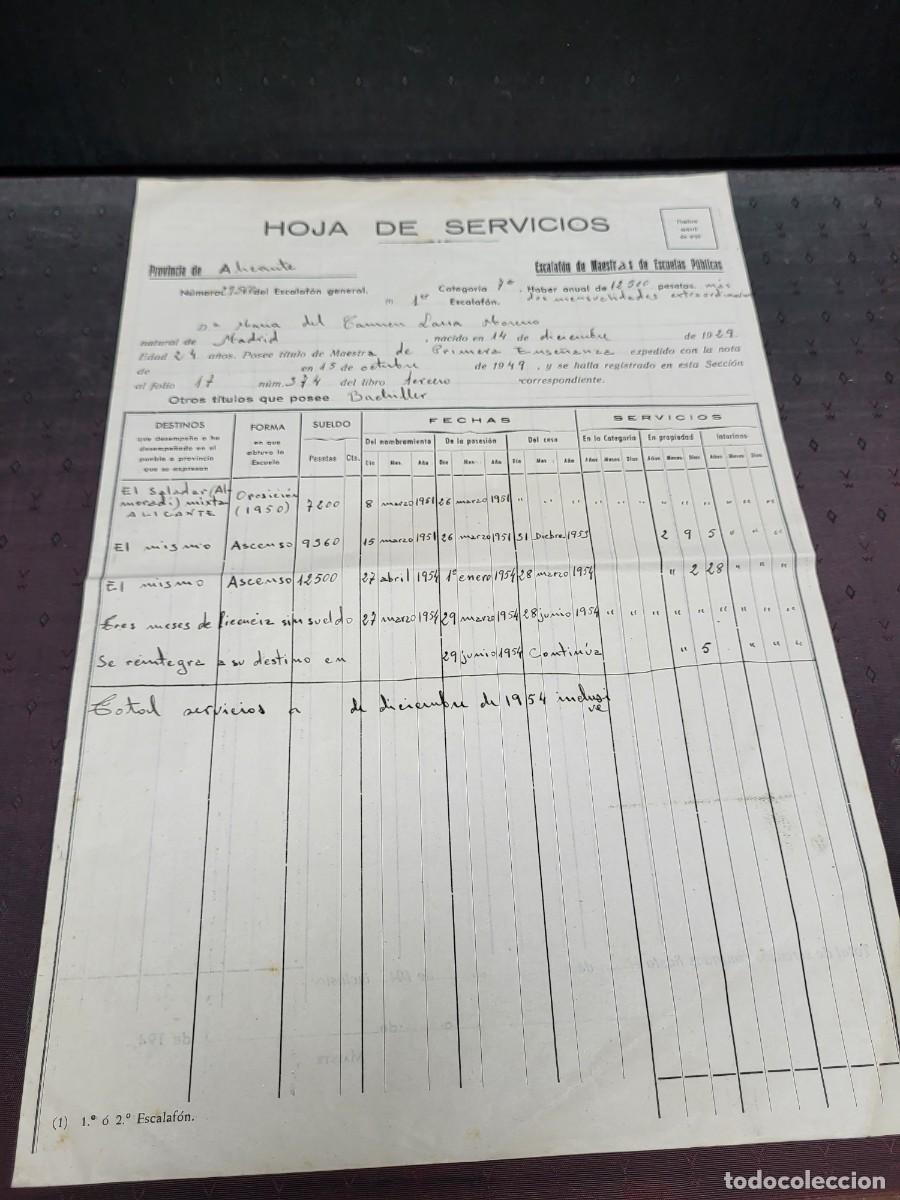 HOJA DE SERVICIOS
Provincia de Alicante
Escalafón de Maestras de Escuelas Públicas
Número del Escalafón general. Categoría 7ª Haber anual de 12.500 pesetas, más
1er Escalafón. dos mensualidades
Dª María del Carmen Moreno
natural de Madrid, nacido en 14 de diciembre de 1929
Edad 24 años. Posee título de Maestra de Primera Enseñanza expedido con la nota
de en 15 de octubre de 1949, y se halla registrado en esta Sección
al folio 17 núm. 374 del libro tercero correspondiente.
Otros títulos que posee Bachiller
DESTINOS
que desempeña o ha
desempeñado en el
pueblo o provincia
que se expresan
FORMA
en que
obtuvo la
Escuela
SUELDO
Pesetas Cts.
FECHAS
Del nombramiento De la posesión Del cese
Día Mes Año Día Mes Año Día Mes Año
SERVICIOS
En la Categoría En propiedad Interinos
Años Meses Días Años Meses Días Años Meses Días
El Saladar (Al-
moradí) mixta
ALICANTE
Oposición
(1950)
7200 8 marzo 1951 26 marzo 1951 " " " " " " " " " " " "
El mismo Ascenso 9360 15 marzo 1951 26 marzo 1951 31 Dicbre 1953 2 9 5 " " "
El mismo Ascenso 12500 27 abril 1954 1º enero 1954 28 marzo 1954 " 2 28 " " "
Tres meses de licencia sin sueldo 27 marzo 1954 29 marzo 1954 28 junio 1954 " " " " " " " " "
Se reintegra a su destino en 29 junio 1954 Continúa " 5 " " "
Total servicios a de diciembre de 1954 inclusi
ve
(1) 1.º ó 2.º Escalafón.
todocoleccion